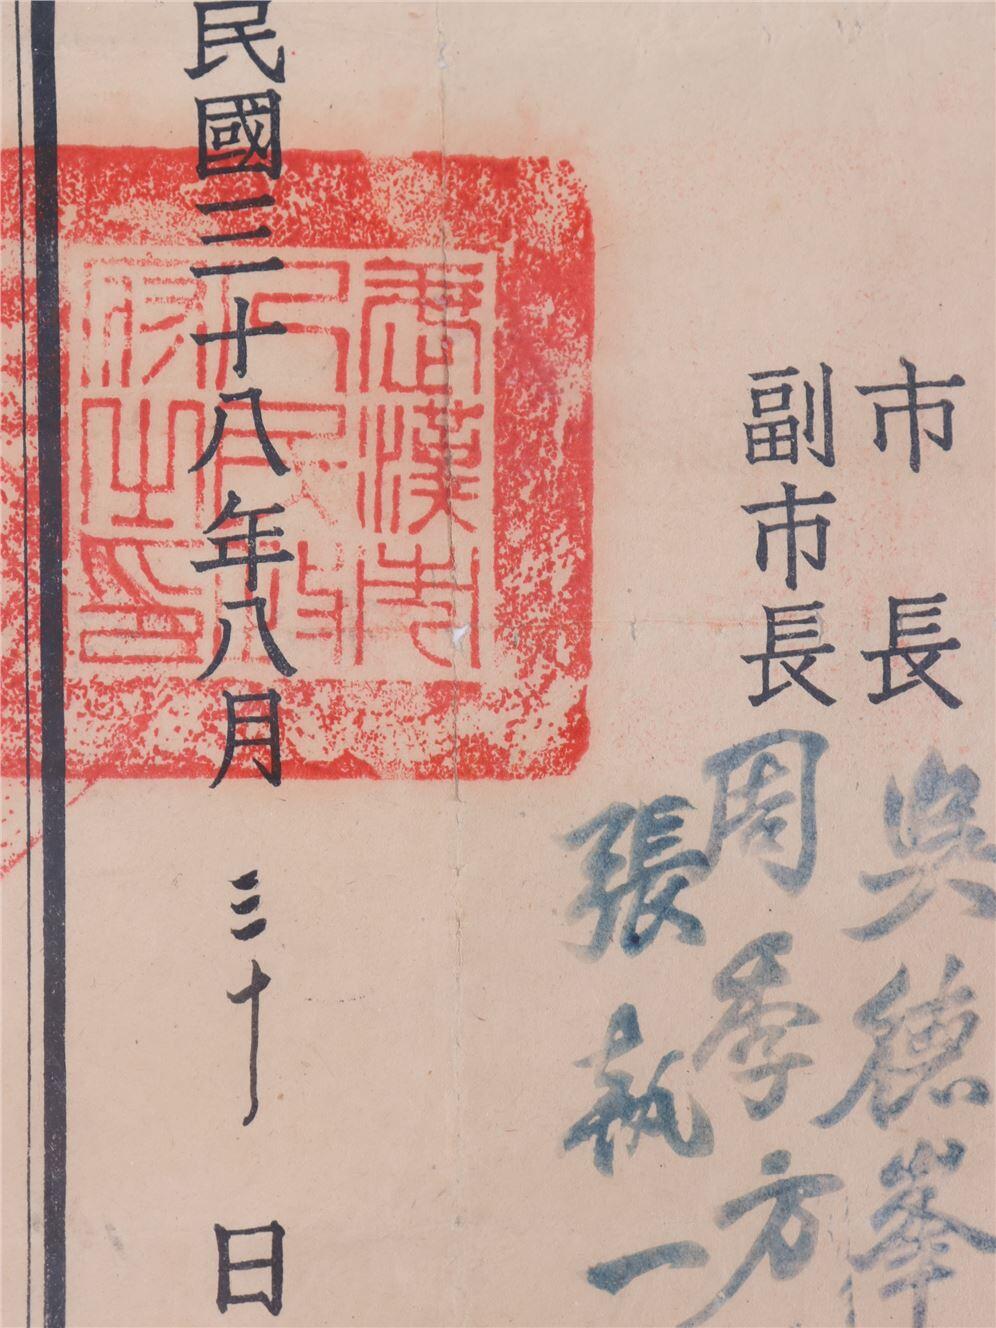 市長 吳德峯
副市長 周季方
張執一
民國三十八年八月三十日
武漢市
人民政
府之印